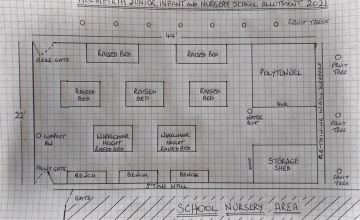 JUNIOR INFANT AND NURSERY SCHOOL ALLOTMENT 2021
FRUIT TREES
44'
REAR GATE
RAISED BED
RAISED BED
POLYTUNNEL
FRUIT
TREE
RAISED
BED
RAISED
BED
RAISED
BED
DOOR
22'
WATER
BUTT
FRUIT
TREE
COMPOST
BIN
WHEELCHAIR
HEIGHT
RAISED BED
WHEELCHAIR
HEIGHT
RAISED BED
STORAGE
SHED
FRUIT
TREE
FRONT GATE
BENCH
BENCH
BENCH
STONE WALL
GATE
SCHOOL NURSERY AREA